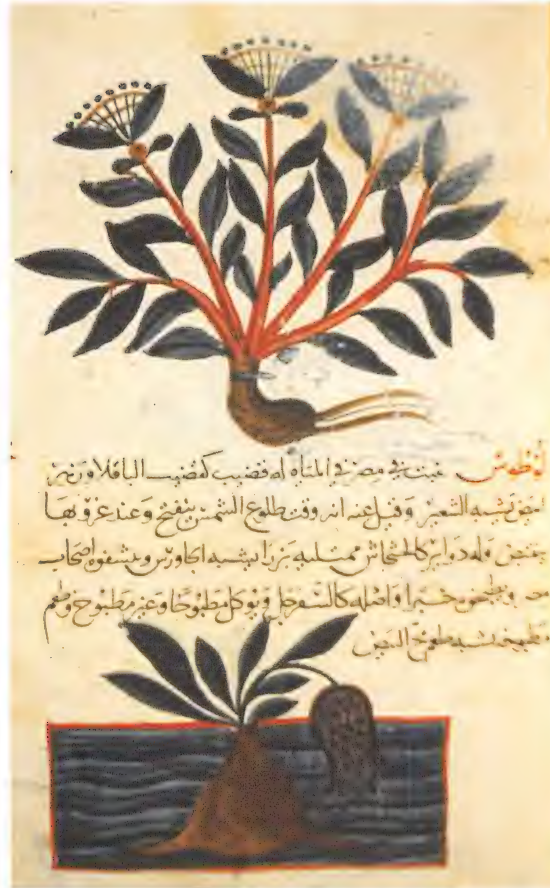 لوطوس ينبت في مصر في المياه له قضيب كقضيب الباقلا وزهر
ابيض يشبه وقيل عنه انه وقت طلوع الشمس ينفتح وعند غروبها
ينقبض وله كالخشخاش ممتليه بزرا يشبه الجاورس ويشفوه اصحاب
مصر خبزا واصله كالسفرجل ويوكل مطبوخا وغير مطبوخ وطعم
مطبوخه يشبه طعم مخ البيض